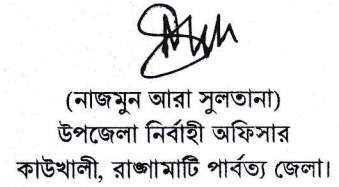 (নাজমুন আরা সুলতানা)
উপজেলা নির্বাহী অফিসার
কাউখালী, রাঙ্গামাটি পার্বত্য জেলা।